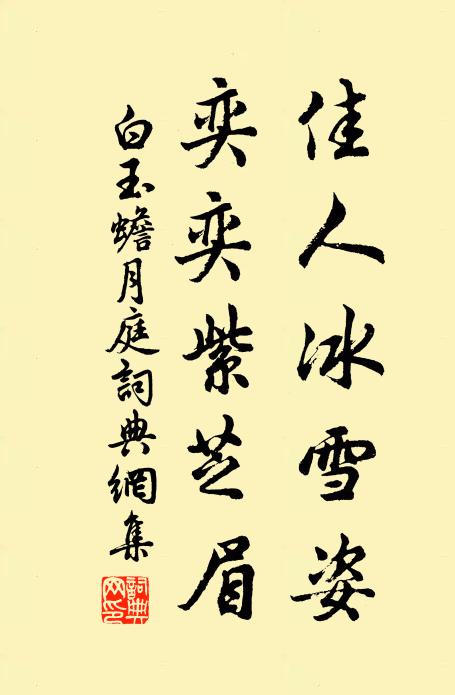 佳人冰雪姿
奕奕紫芝眉
白玉蟾月庭詞典網集
詞典网印